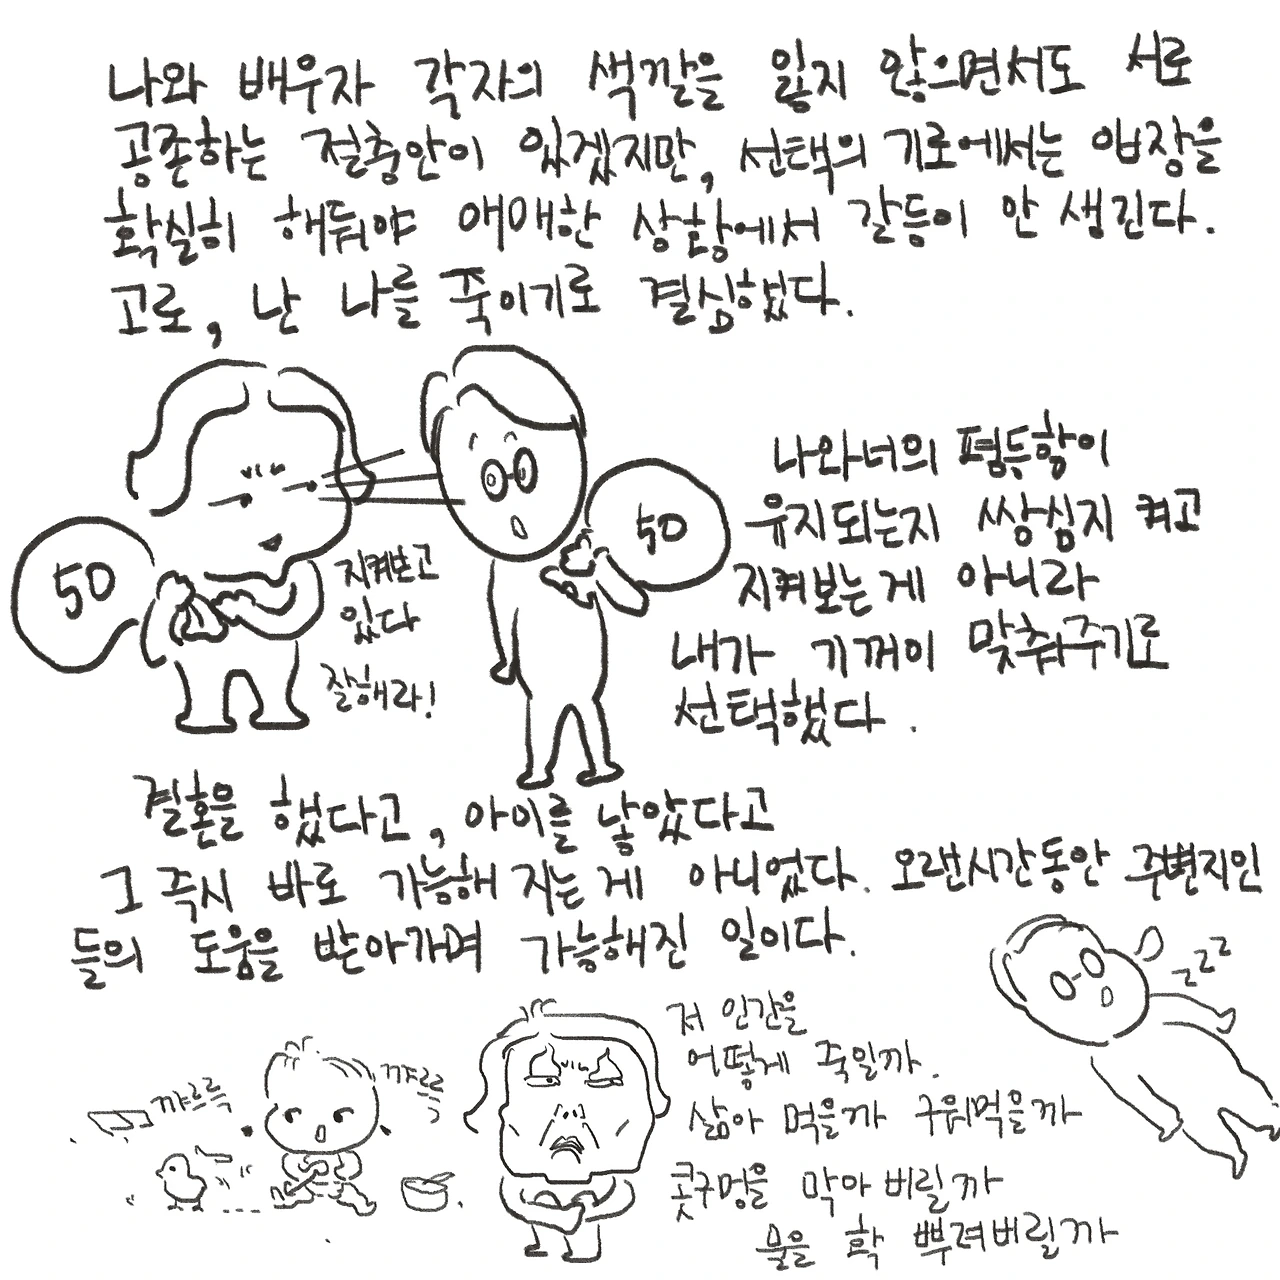 나와 배우자 각자의 색깔을 잃지 않으면서도 서로
공존하는 절충안이 있겠지만, 선택의 기로에서는 입장을
확실히 해둬야 애매한 상황에서 갈등이 안 생긴다.
고로, 난 나를 죽이기로 결심했다.
50
지켜보고
있다
잘해라!
50
나와너의 평등함이
유지되는지 쌍심지 켜고
지켜보는게 아니라
내가 기꺼이 맞춰주기로
선택했다.
결혼을 했다고, 아이를 낳았다고
그 즉시 바로 가능해 지는게 아니었다. 오랜시간동안 주변지인
들의 도움을 받아가며 가능해진 일이다.
zzz
꺄르륵
꺄르르
륵
저 인간을
어떻게 죽일까.
삶아 먹을까 구워먹을까
콧구멍을 막아버릴까
물을 확 뿌려버릴까